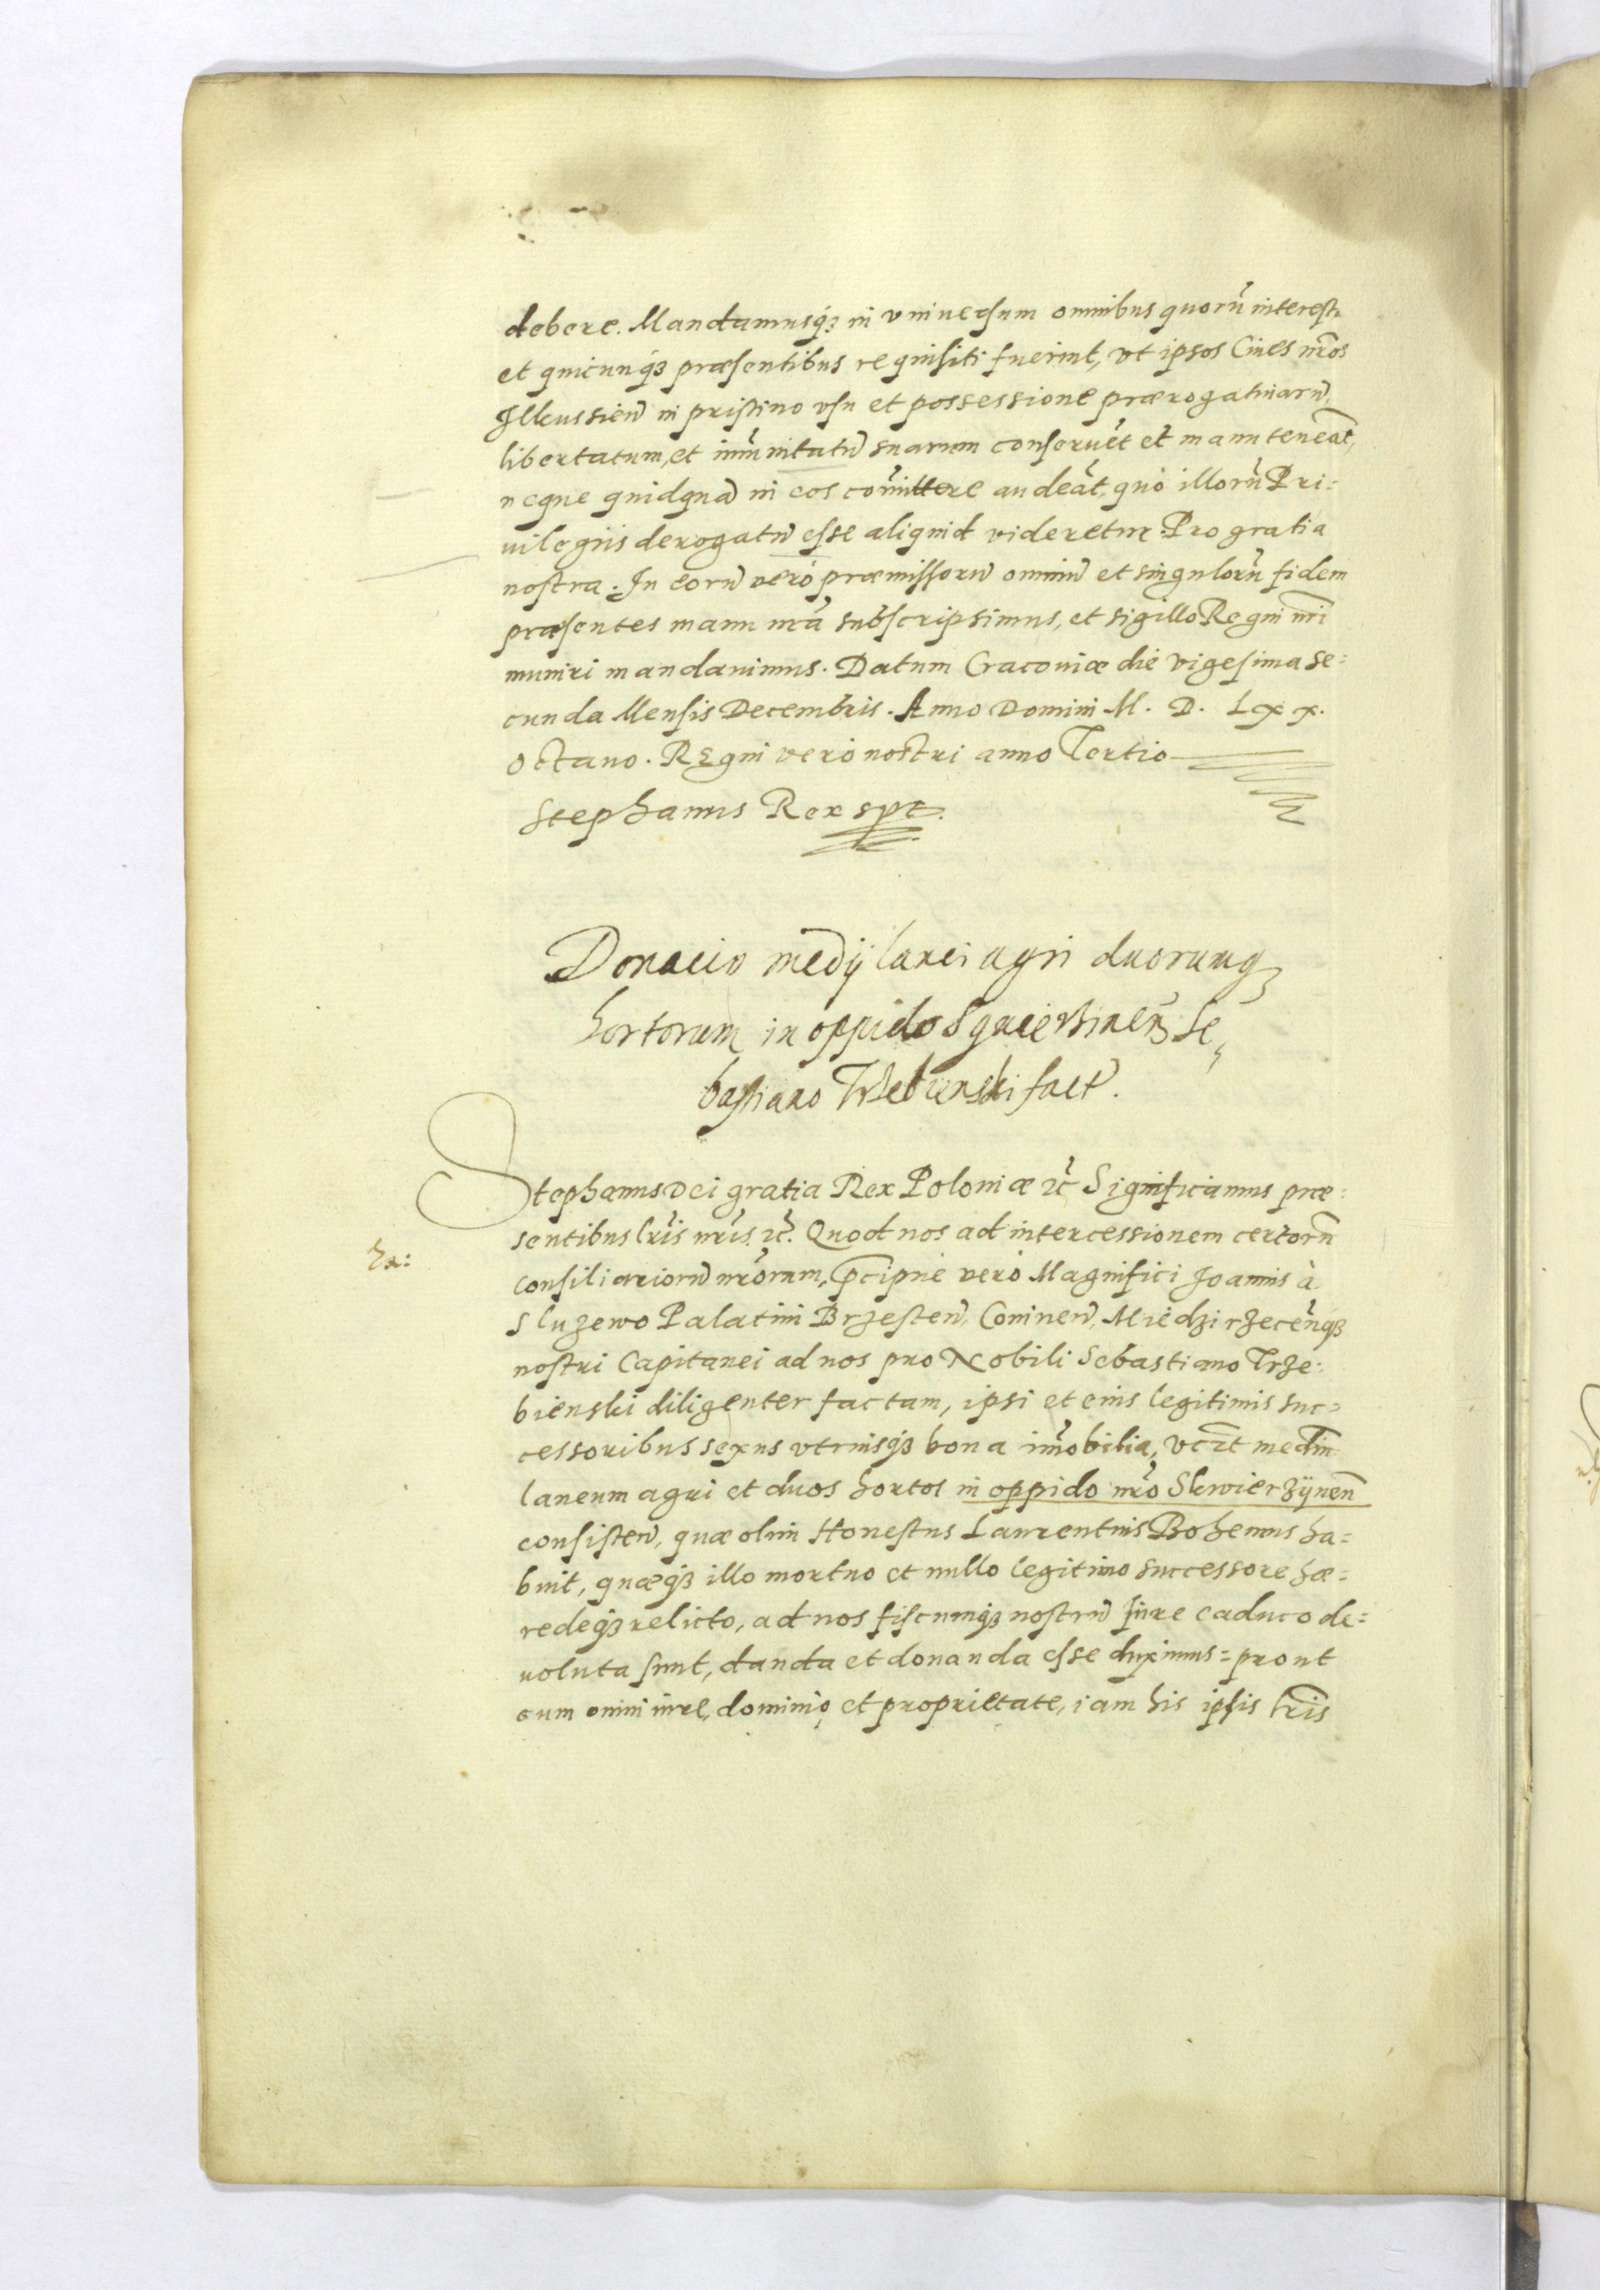 debere. Mandamusq́ꝫ in vniuersum omnibus quorū interest,
et quicunq́ꝫ præsentibus requisiti fuerint, vt ipsos Ciues nr̃os
Ilkussien̄ in pristino vsu et possessione prærogatiuarū,
libertatum, et im̄unitatū suarum conseruēt et manu teneāt,
neque quidquā in eos com̄ittere audeāt, quo illorū Pri:
uilegiis derogatū esse aliquid videretur Pro gratia
nostra. In eorū vero præmissorū omniū et singulorū fidem
præsentes manu nr̃a subscripsimus, et sigillo Regni nr̃i
muniri mandauimus. Datum Cracouiæ die vigesima se:
cunda Mensis Decembris. Anno Domini M. D. Lxx.
octauo. Regni vero nostri anno Tertio
Stephanus Rex spt.
Donacio medÿ lanei agri duorumqꝫ
hortorum in oppido Squierzinen̄ Se
bastiano Trzebienski fact̄.
Stephanus Dei gratia Rex Poloniæ ꝛc̃ Significamus præ:
sentibus lr̃is nr̃is ꝛc̃. Quod nos ad intercessionem certorū
Consiliariorū nr̃orum, p̄cipue vero Magnifici Joannis à
Sluzewo Palatini Brzesten̄, Coninen̄, Miedzirzecen̄q́ꝫ
nostri Capitanei ad nos pro Nobili Sebastiano Trze:
bienski diligenter factam, ipsi et eius legitimis suc:
cessoribus sexus vtriusq́ꝫ bona im̄obilia, vcꝫt mediū
laneum agri et duos hortos in oppido nr̃o Skwierzÿnen̄
consisten̄, quæ olim Honestus Laurentius Bohemus ha:
buit, quæq́ꝫ illo mortuo et nullo legitimo successore hæ:
redeq́ꝫ relicto, ad nos fiscumq́ꝫ nostrū Jure caduco de:
uoluta sunt, danda et donanda esse duximus: prout
cum omni iure, dominio et proprietate, iam his ipsis lr̃is